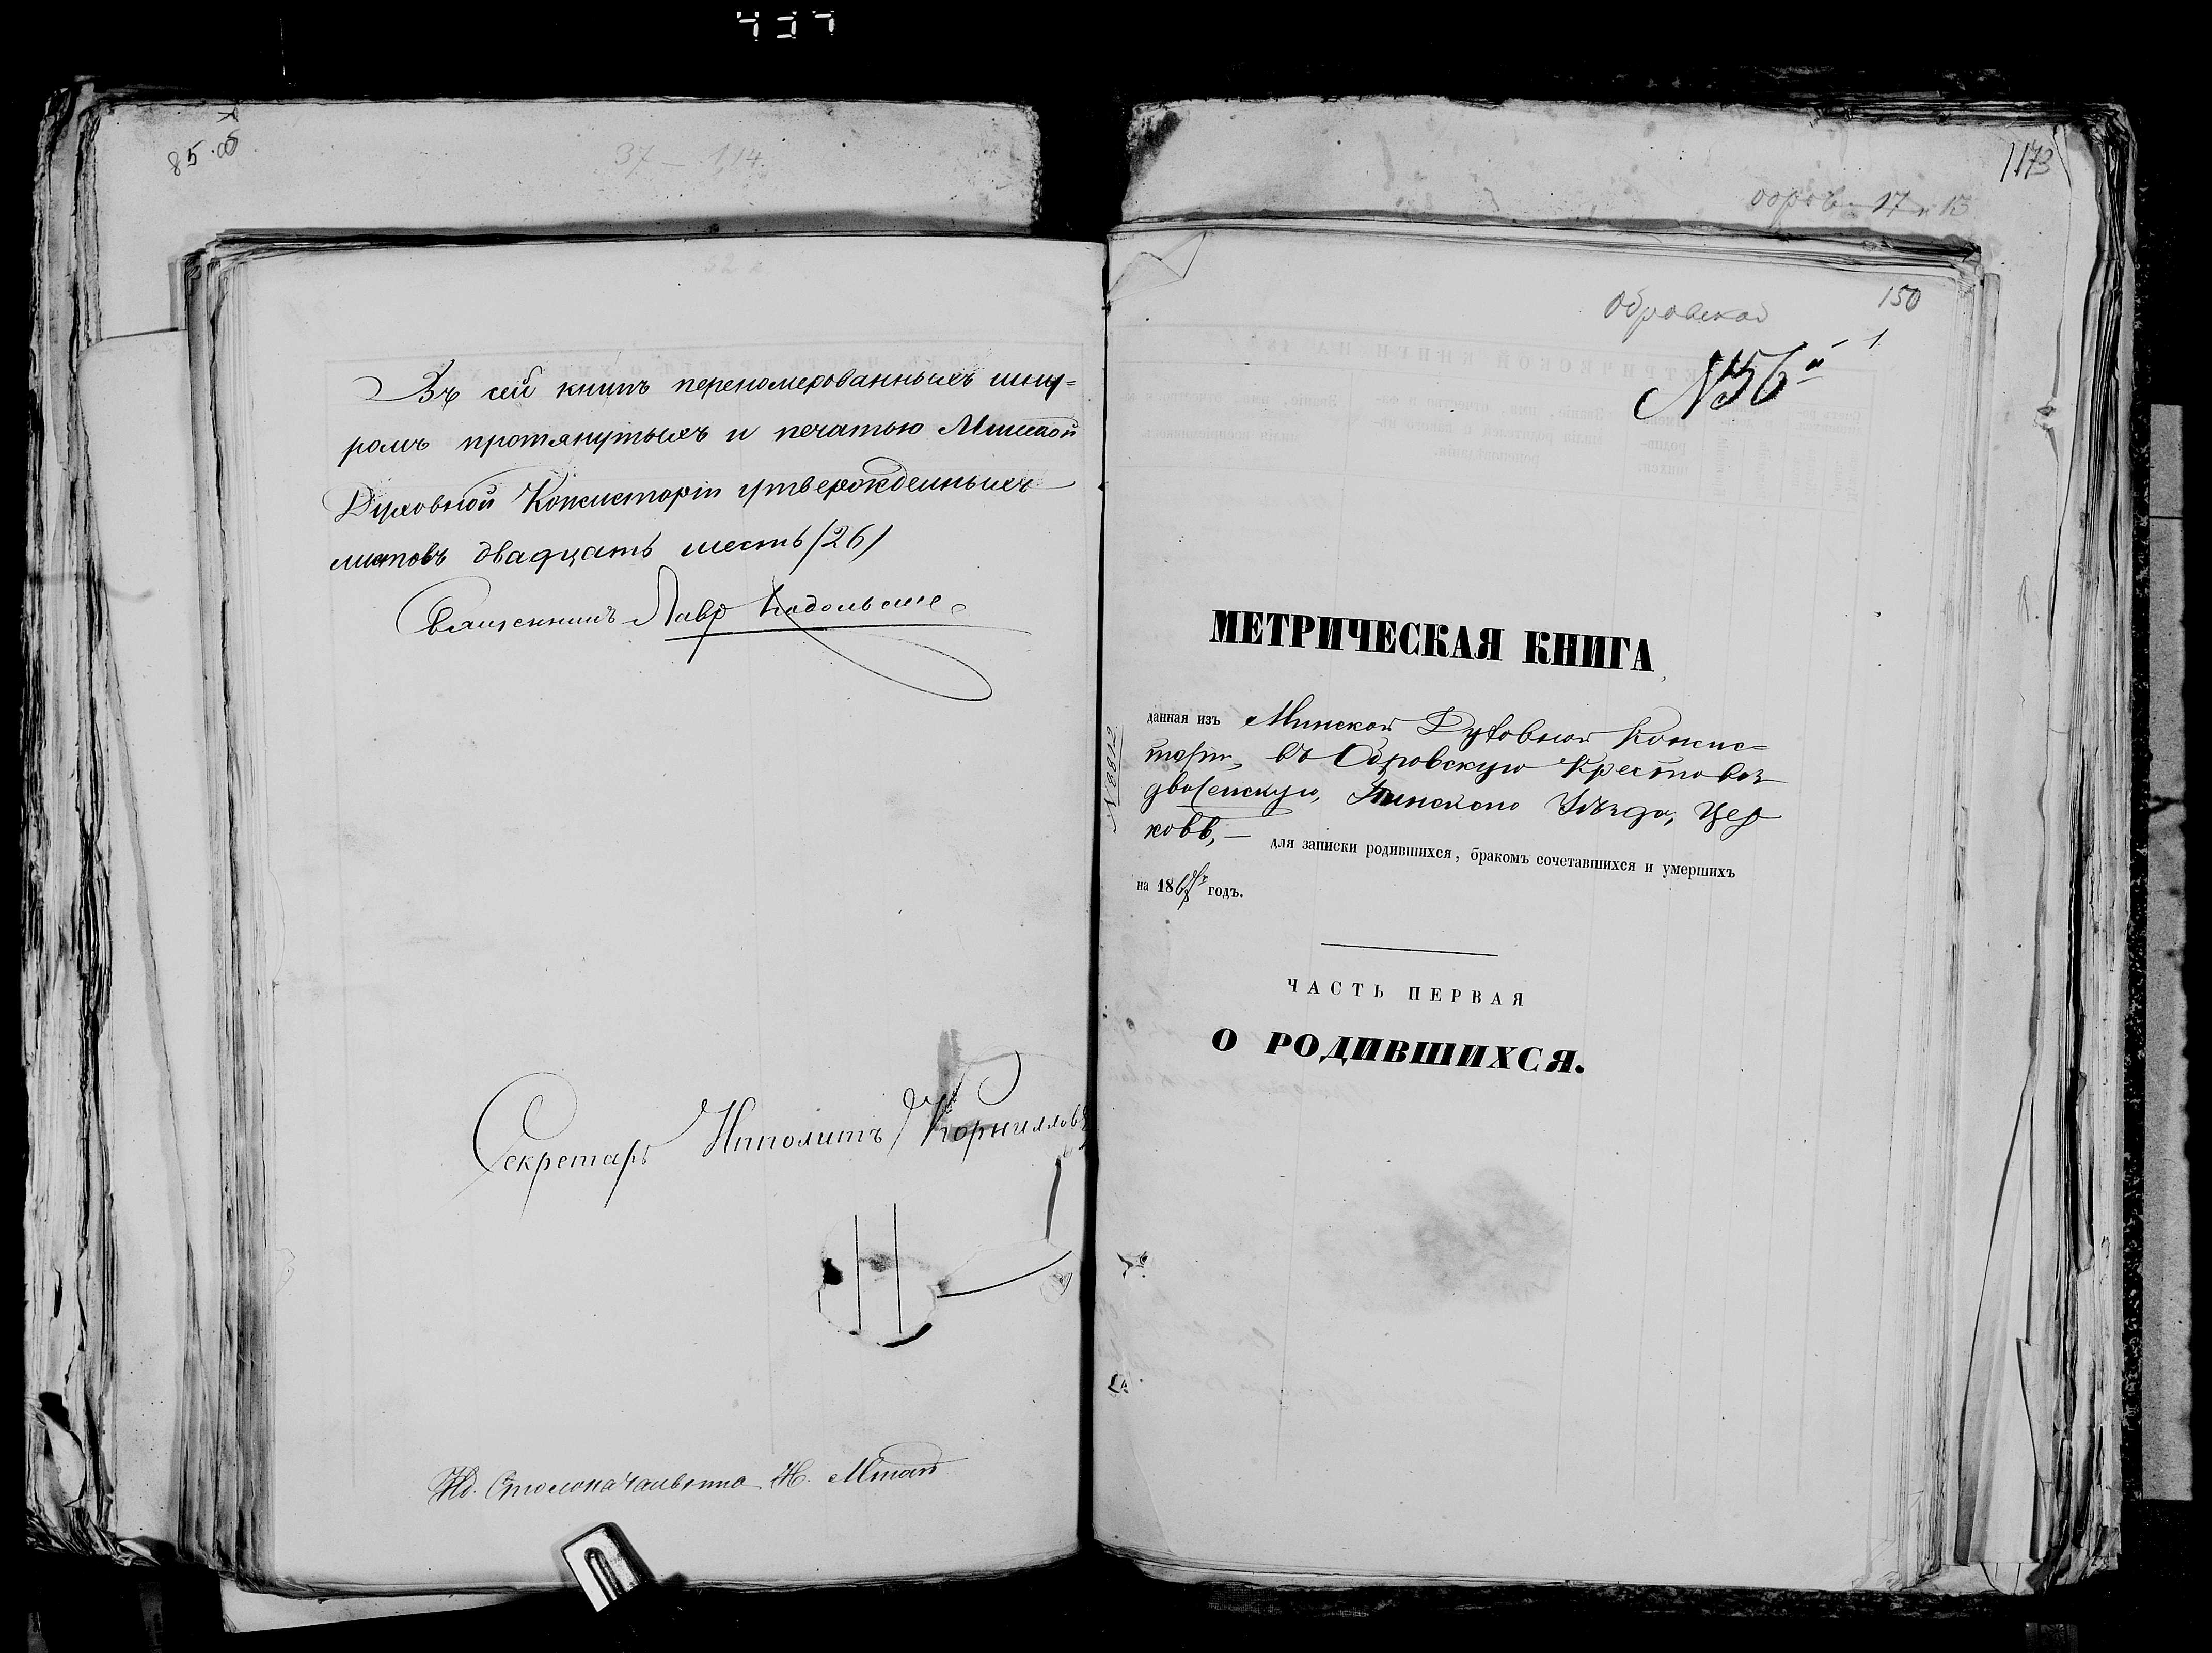 85 об
37 – 114.
Въ сей книгѣ переномерованныхъ шну=
ромъ протянутыхъ и печатью Минской
Духовной Консисторіи утвержденныхъ
листовъ двадцать шесть /26/
Священникъ Лавр
Секретарь Ипполитъ Корниловъ
Столоначальника Н.
1173
150
Обровской
1
N56й
МЕТРИЧЕСКАЯ КНИГА
данная изъ Минской Духовной Консис=
торіи, въ Обровскую Крестовоз
движенскую, Пинскаго Уѣзда, Цер
ковь, — для записки родившихся, бракомъ сочетавшихся и умершихъ
на 186 годъ.
N 8812
ЧАСТЬ ПЕРВАЯ
О РОДИВШИХСЯ.